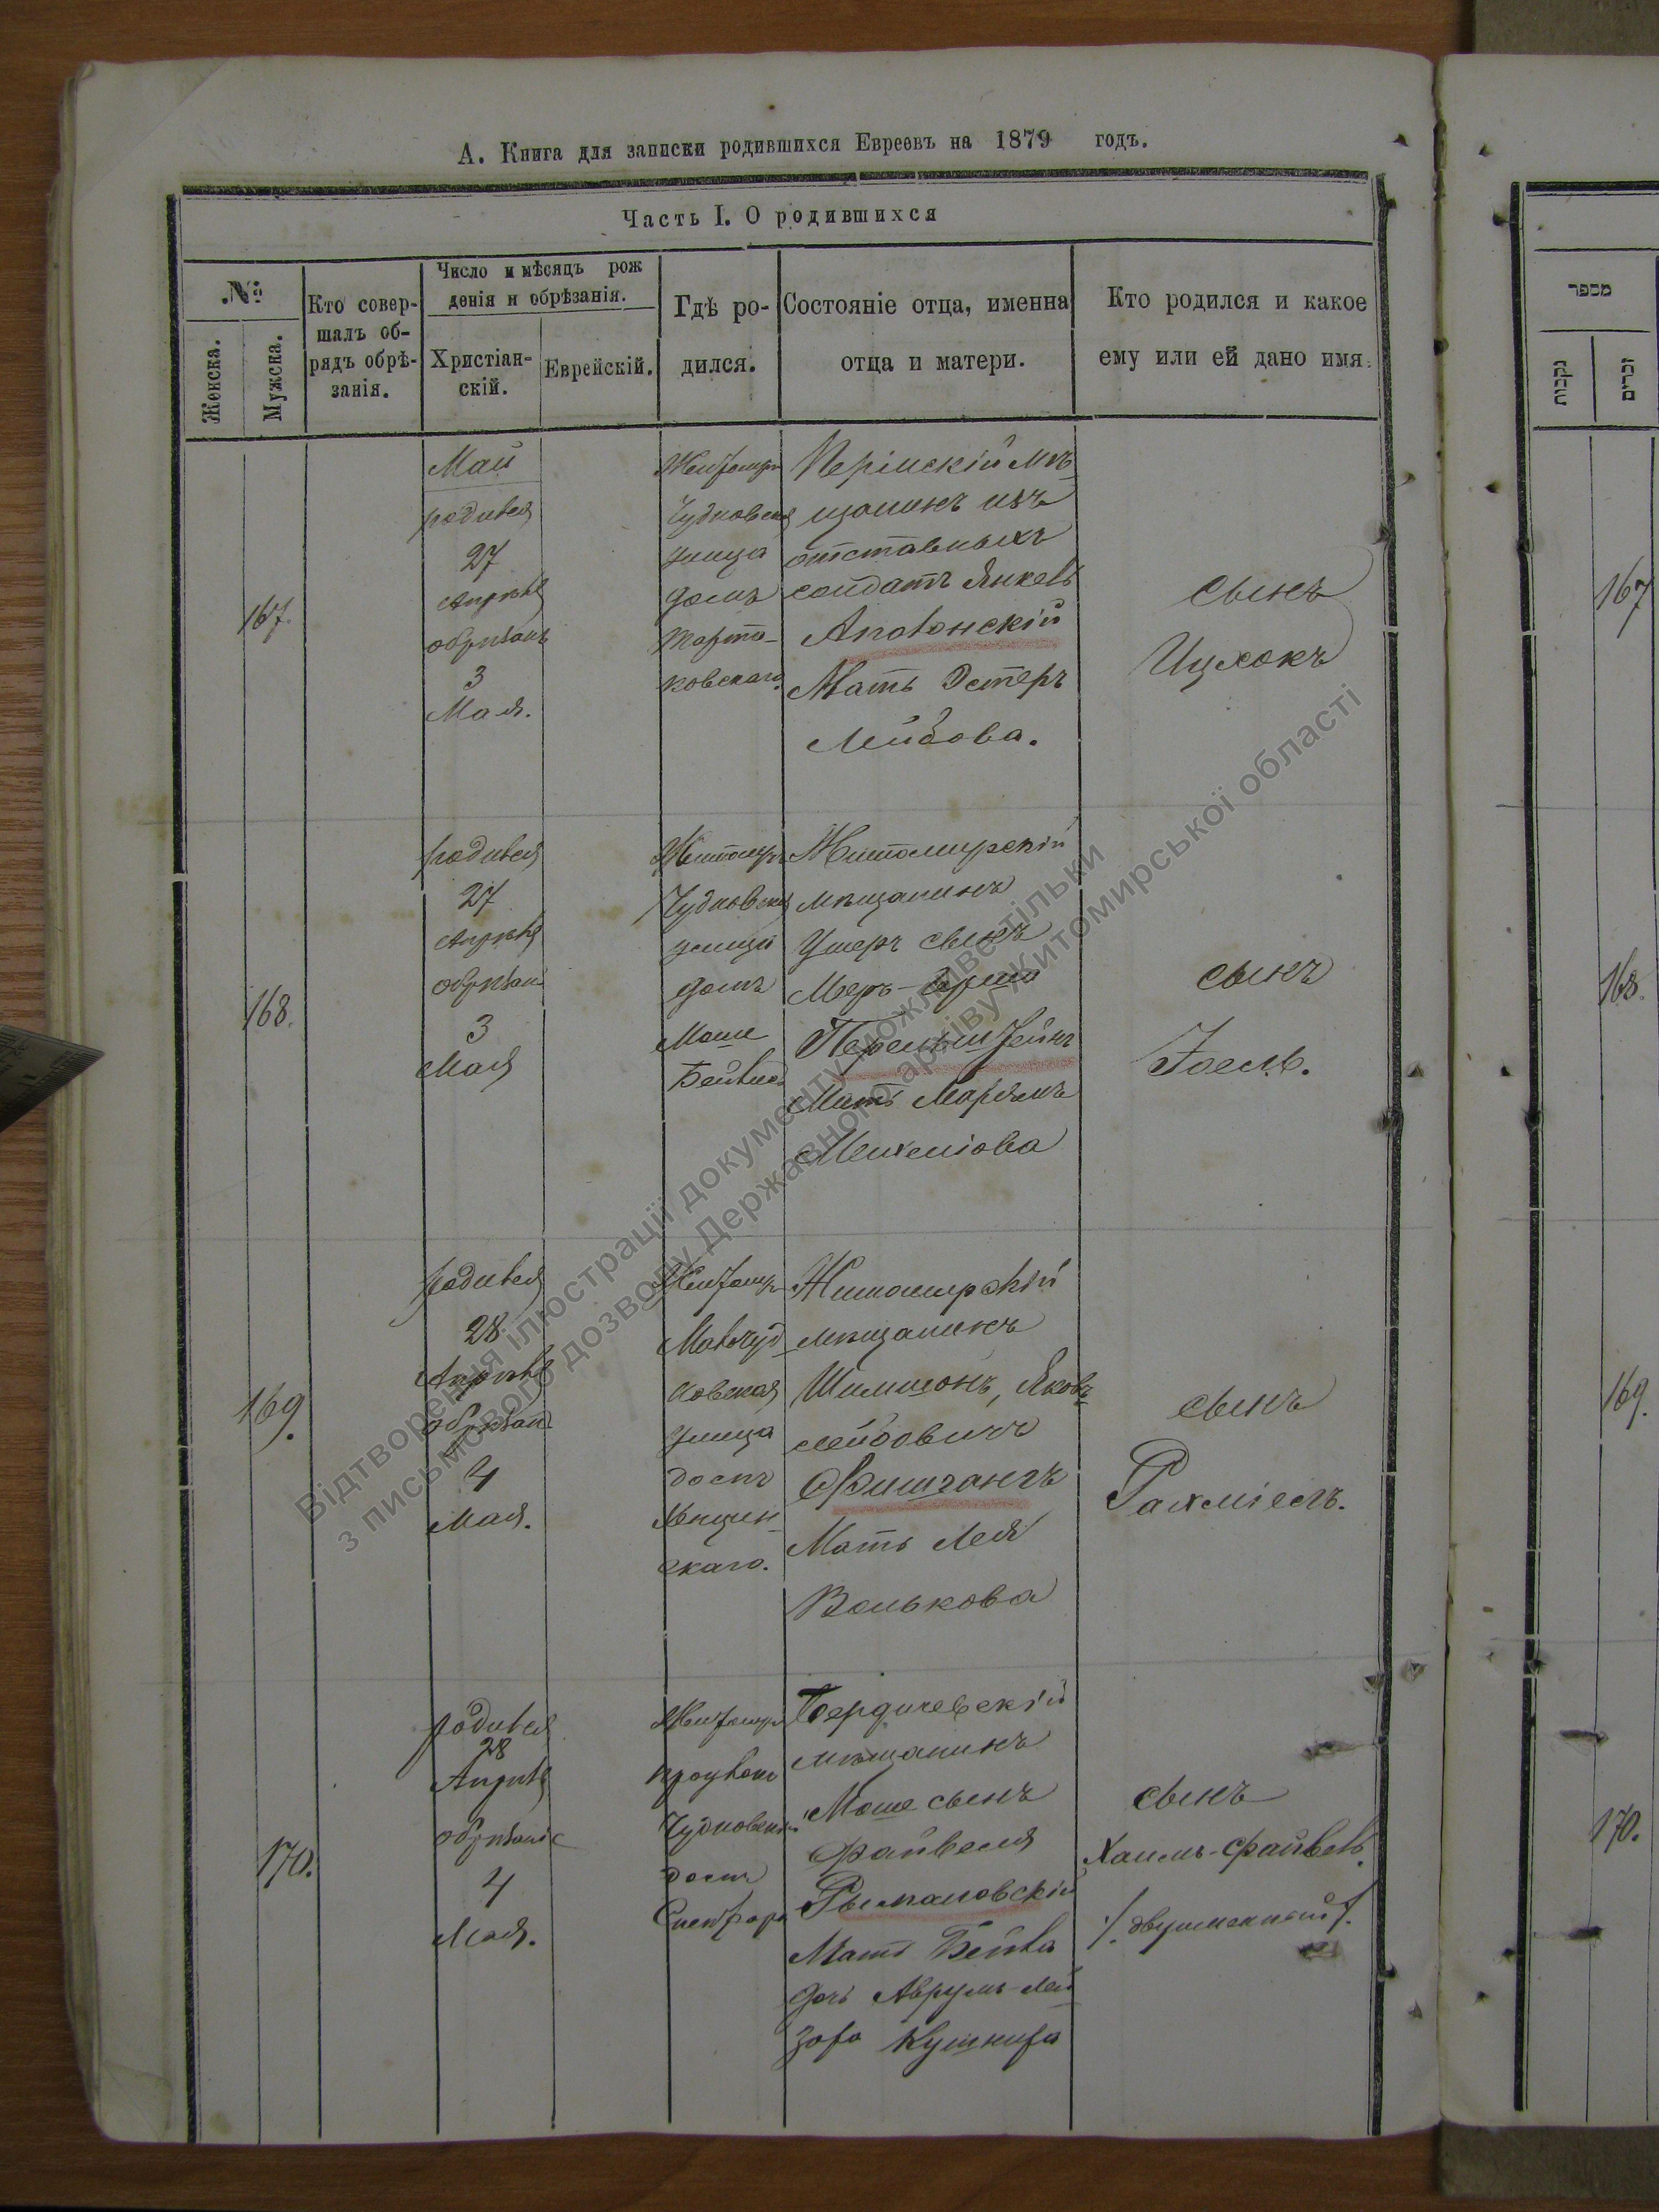 А. Книга для записки родившихся Евреевъ на 1879 годъ.
Часть I. О родившихся
№
Женска.
Мужска.
Кто совер-
шалъ об-
рядъ обрѣ-
занія.
Число и мѣсяцъ рож
денія и обрѣзанія.
Христіан-
скій.
Еврейскій.
Гдѣ ро-
дился.
Состояніе отца, именна
отца и матери.
Кто родился и какое
ему или ей дано имя.
167.
Май
родився
27
Апрѣля
обрѣзанъ
3
Мая.
Житомиръ
Чудновская
улица
домъ
ковскаго
мѣ
щанинъ изъ
отставныхъ
солдатъ Янкель
Аполонскій
Мать Эстеръ
Лейбова.
сынъ
Ицхокъ
168.
родився
27
Апрѣля
обрѣзанъ
3
Мая
Житомиръ
Чудновская
улица
домъ
Моше
Житомирскій
мѣщанинъ
Ушеръ сынъ
Меръ-
Перельштейнъ
Мать Марьямъ
сынъ
Іоель.
169.
родився
28
Апрѣля
обрѣзанъ
4
Мая.
Житомиръ
новская
улица
домъ
скаго.
Житомирскій
мѣщанинъ
Шимшонъ, Яковъ
Лейбовичъ
Фишгангъ
Мать Лея
Волькова
сынъ
Рахміель.
170.
родився
28
Апрѣля
4
Мая.
Житомиръ
Чудновский
домъ
Бердичевскій
мѣщанинъ
Моше сынъ
Файвеля
Рымановскій
Мать Бейла
дочь Аврумъ-Лей
зора Кушнира
сынъ
Хаимъ-Файвель
/. двуименный /.
מספר
נקבות
זכרים
167
168.
169.
170.
Відтворення ілюстрації документу можливе тільки
з письмового дозволу Державного архіву Житомирської області